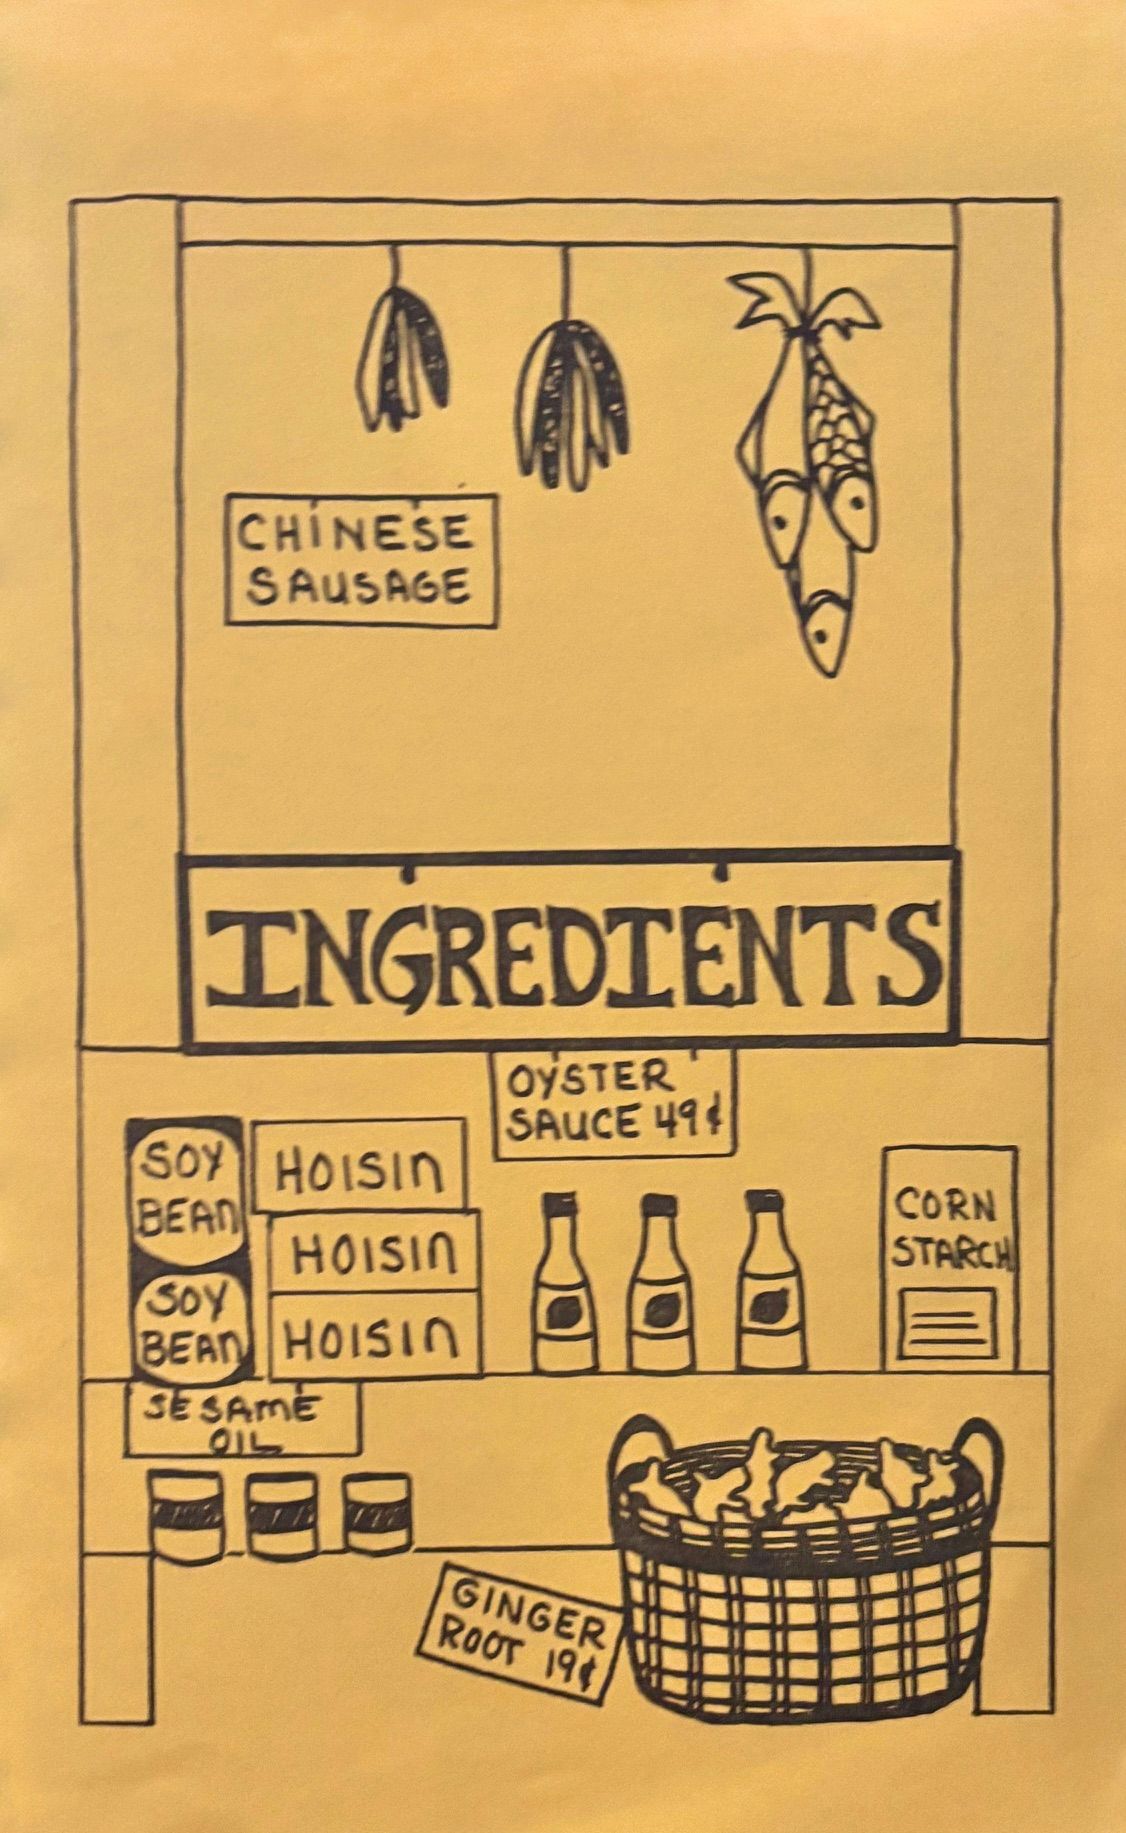 CHINESE
SAUSAGE
INGREDIENTS
OYSTER
SAUCE 49¢
SOY
BEAN
HOISIN
HOISIN
SOY
BEAN
HOISIN
CORN
STARCH
SESAME
OIL
GINGER
ROOT 19¢